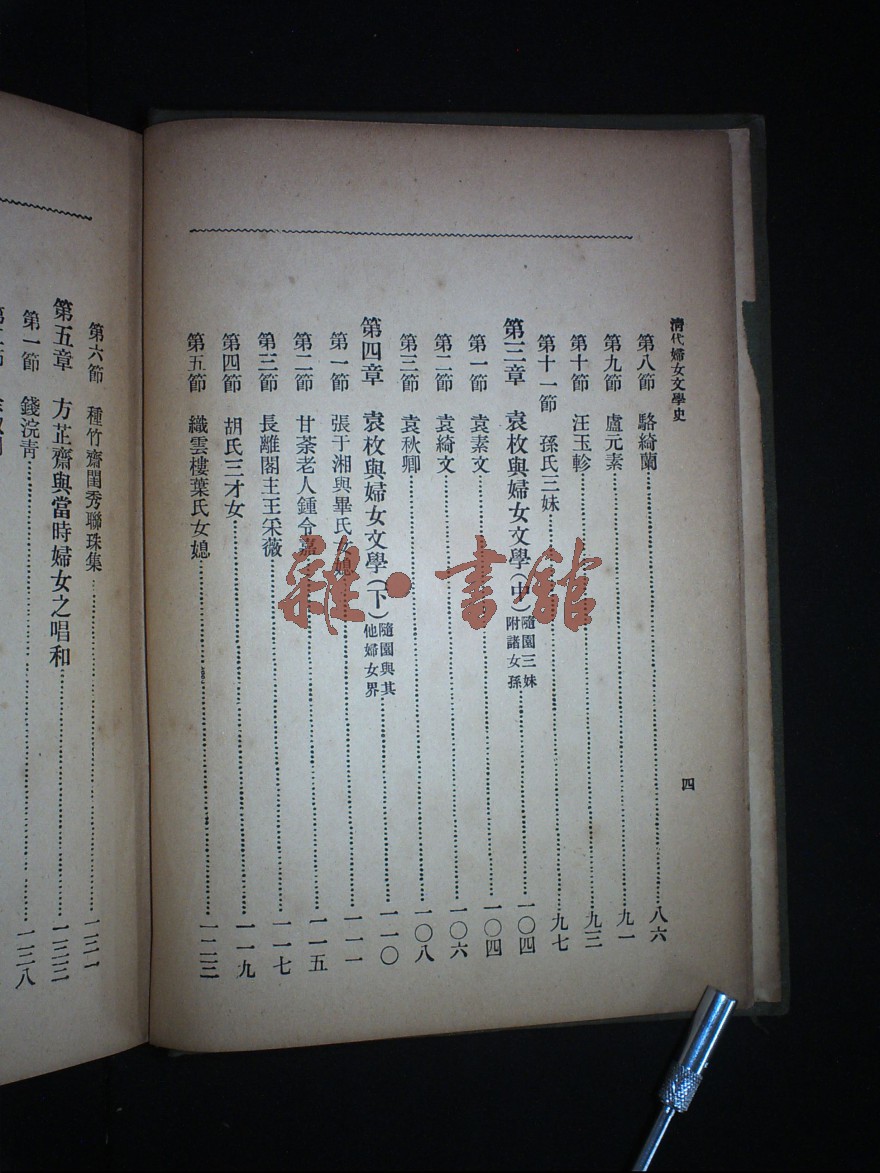 清代婦女文學史
四
第八節 駱綺蘭 八六
第九節 盧元素 九一
第十節 汪玉軫 九三
第十一節 孫氏三妹 九七
第三章 袁枚與婦女文學(中) 隨園三妹附諸女孫 一〇四
第一節 袁素文 一〇四
第二節 袁綺文 一〇六
第三節 袁秋卿 一〇八
第四章 袁枚與婦女文學(下) 隨園與其他婦女界 一一〇
第一節 張于湘與畢氏女媳 一一一
第二節 甘荼老人鍾令嘉 一一五
第三節 長離閣主王采薇 一一七
第四節 胡氏三才女 一一九
第五節 織雲樓葉氏女媳 一二三
第六節 種竹齋閨秀聯珠集 一三一
第五章 方芷齋與當時婦女之唱和 一三三
第一節 錢浣青 一三八
雜·書館